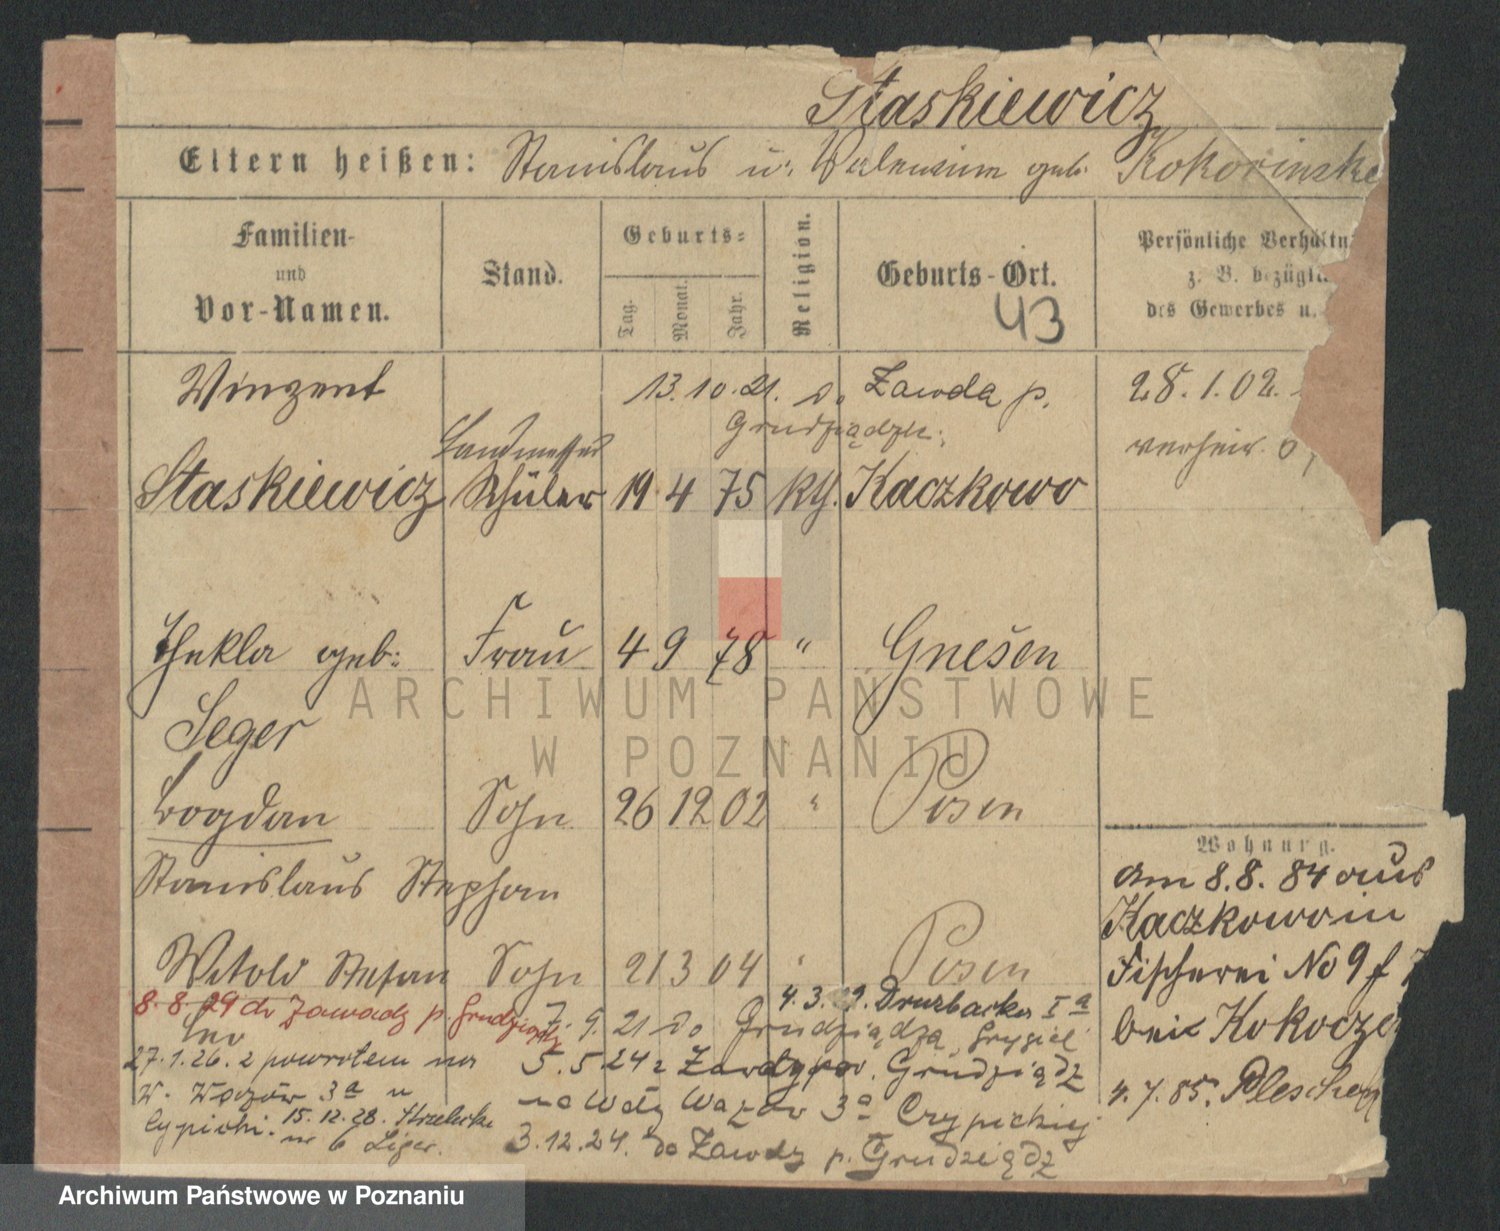 Staskiewicz
Eltern heißen: Stanislaus u. geb.
Familien-
und
Vor-Namen.
Stand.
Geburts-
Tag.
Monat.
Jahr.
Religion.
Geburts-Ort.
43
Persönliche Verhältn
z. B. bezügl
des Gewerbes u.
Winzent 13.10.21. do Zawda p. 28.1.02.
Grudziądzu. verheir.
Landmesser
Staskiewicz Schüler 19 4 75 kth. Kaczkowo
Thekla geb: Frau 4 9 78 " Gnesen
Seger
Bogdan Sohn 26 12 02 " Posen
Stanislaus Stephan
Witold Stefan Sohn 21 3 04 " Posen
Leo
8.8.29 do Zawady p. Grudziądz
7.9.21 do Grudziądza
27.1.26. z powrotem na
W. Wazów 3a u
15.12.28. Strzelecka
nr 6
5.5.24 z Zawdy pow. Grudziądz
na Wały Wazów 3a
3.12.24. do Zawdy p. Grudziądz
Wohnung.
am 8.8.84 aus
Kaczkowo in
Fischerei No 9
bei
4.7.85. Pleschen
ARCHIWUM PAŃSTWOWE
W POZNANIU
Archiwum Państwowe w Poznaniu